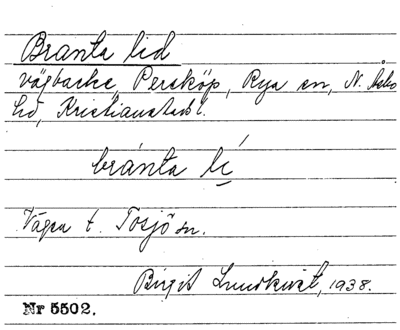 Branta lid
vägbacke, Persköp, Rya sn, N. Åsbo
hd, Kristianstads l.
bránta lí
Vägen t. Tosjö sn.
Birgit Lundkvist, 1938.
Nr 5502.